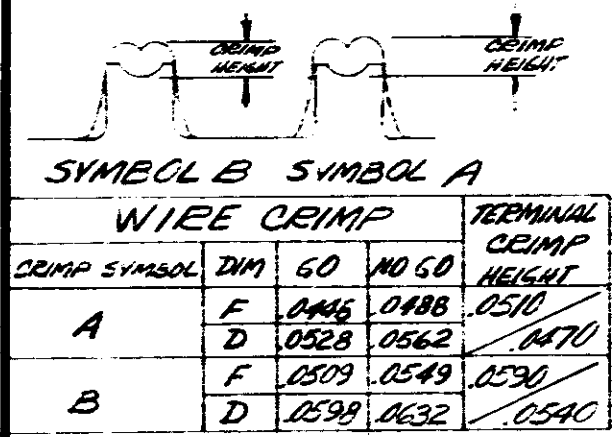 CRIMP HEIGHT
CRIMP HEIGHT
SYMBOL B SYMBOL A
WIRE CRIMP
TERMINAL CRIMP HEIGHT
CRIMP SYMBOL DIM GO NO GO
A
F .0446 .0488 .0510
D .0528 .0562 .0470
B
F .0509 .0549 .0590
D .0598 .0632 .0540